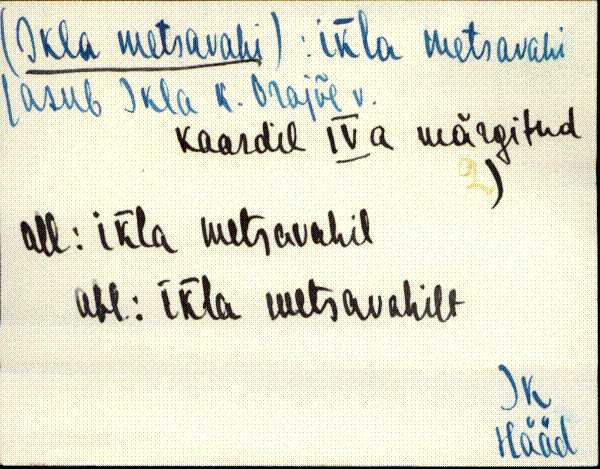 (Ikla metsavahi) : ik̄la metsavahi
(asub Ikla k. Orajõe v.
kaardil IV a märgitud
2)
all: ik̄la metsavahil
abl.: ik̄la metsavahilt
IK
Hääd